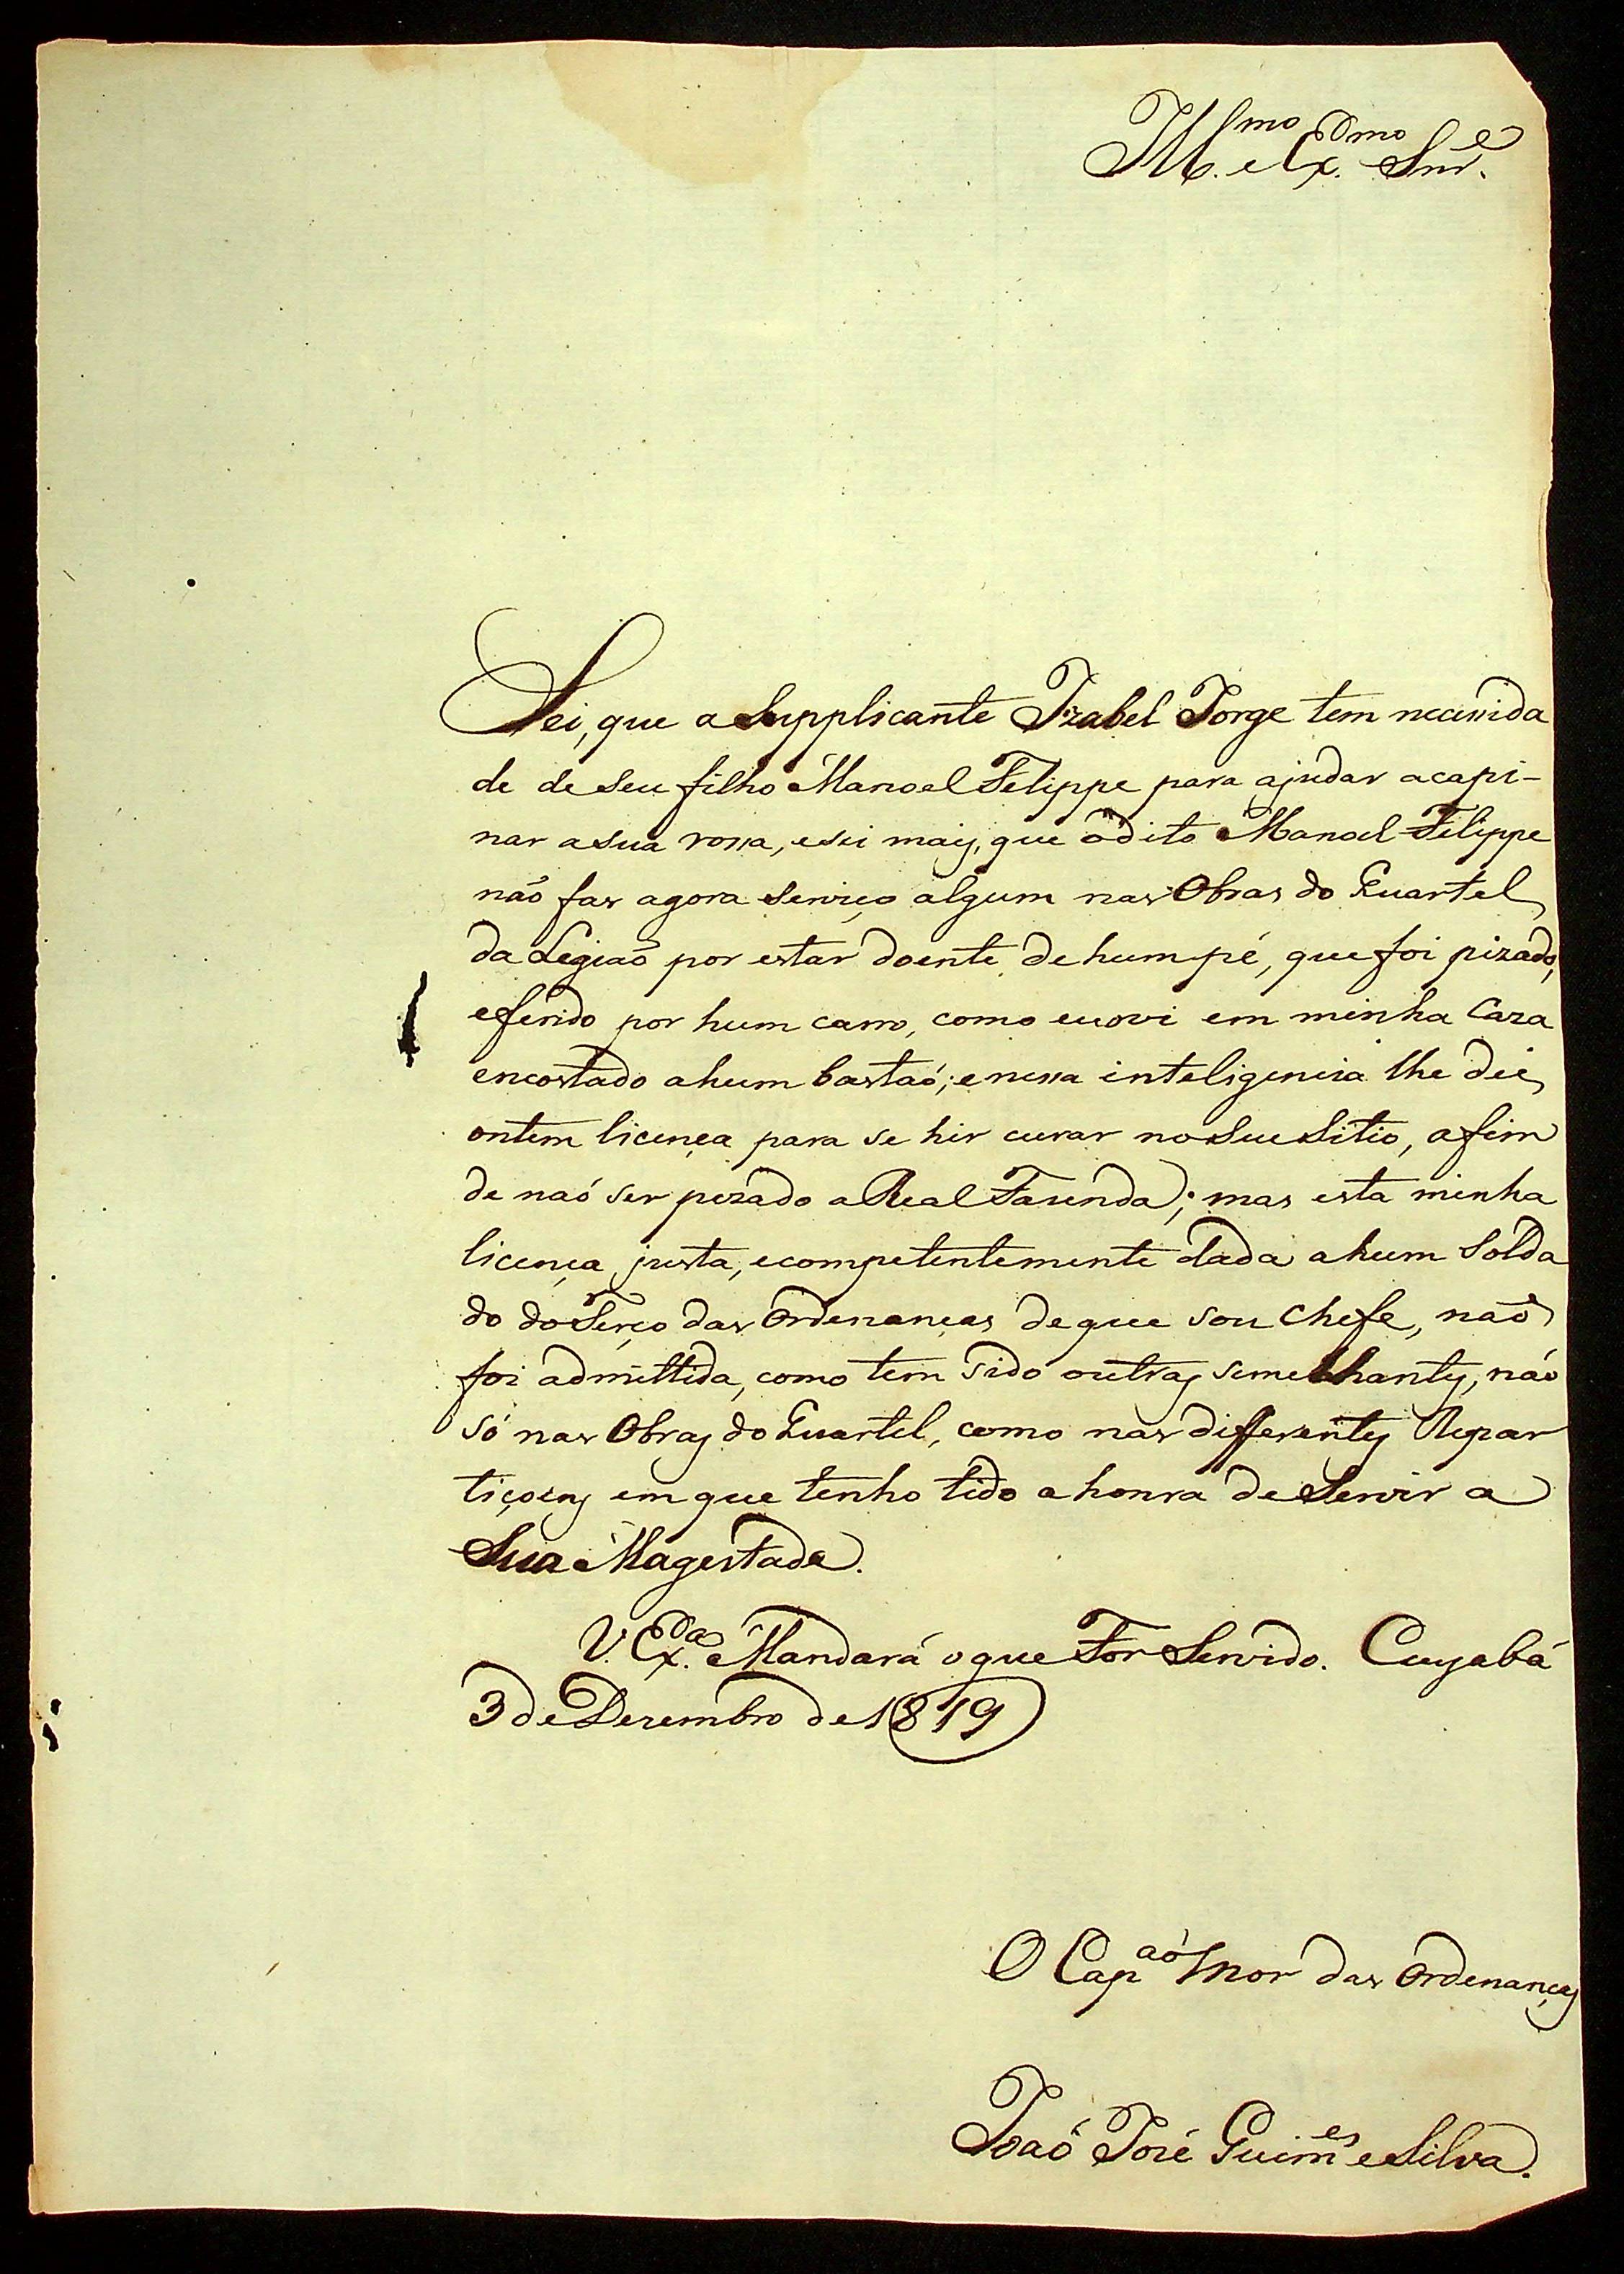 Ill.mo e Ex.mo Snr.e
Sei, que a Supplicante Izabel Jorge tem necessida
de de seu filho Manoel Felippe para ajudar a capi-
nar a sua rossa, e sei mais, que o dito Manoel Felippe
não fas agora serviço algum nas Obras do Quartel
da Legiaõ por estar doente de hum pé, que foi pizado,
e ferido por hum carro, como eu o vi em minha Caza
encostado a hum bastaõ; e nessa inteligencia lhe dei
ontem licença para se hir curar no seu Sitio, a fim
de naõ ser pezado a Real Fazenda; mas esta minha
licença justa, e competentemente dada a hum Solda
do do Terço das Ordenanças de que sou Chefe, naõ
foi admittida, como tem sido outras semelhantes, não
só nas Obras do Quartel, como nas differentes Repar
tiçoens em que tenho tido a honra de Servir a
Sua Magestade.
V. Ex.a Mandará o que For Servido. Cuyabá
3 de Dezembro de 1819
O Cap.aõ Mor das Ordenanças
Joaõ José Guim.es e Silva.